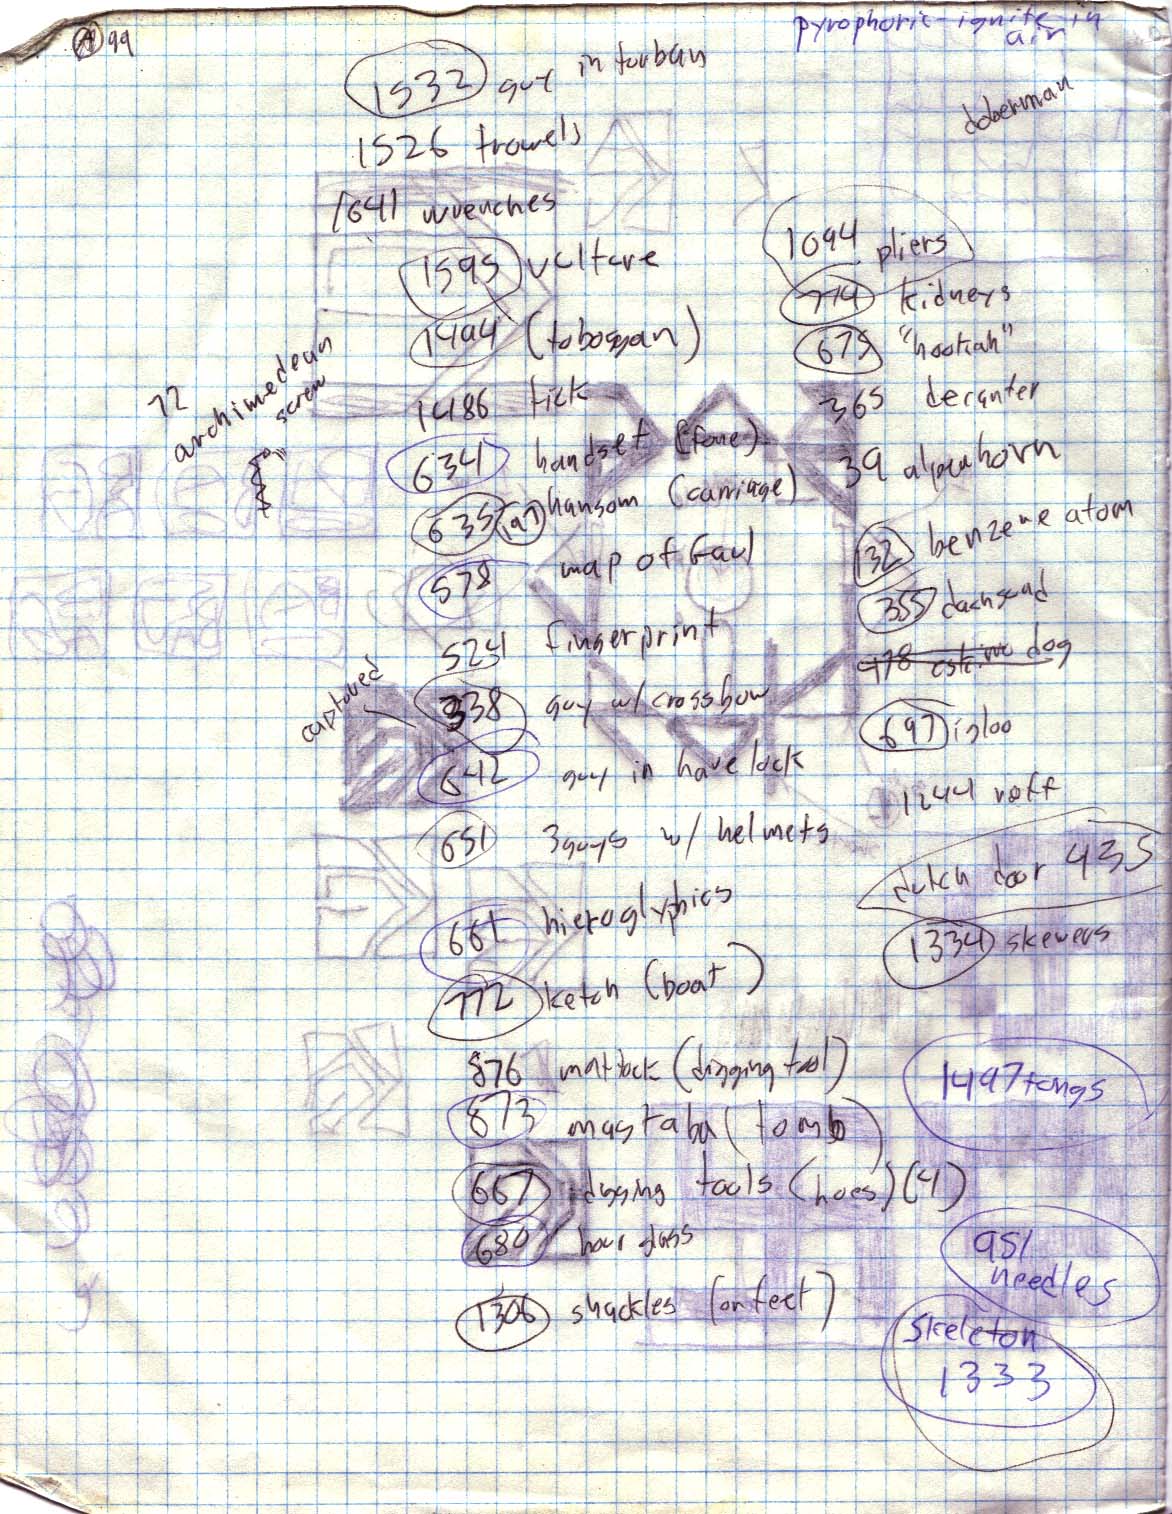 A 99
pyrophoric - ignite in
air
1532 guy in turban
doberman
1526 trowels
1641 wrenches
1094 pliers
1595 vulture
774 kidneys
1494 (toboggan)
679 "hookah"
72
archimedean
screw
1486 tick
365 decanter
634 handset (fone)
39 alpenhorn
635 197 hansom (carriage)
132 benzene atom
578 map of Gaul
355 dachsund
524 fingerprint
478 eskimo dog
captured
338 guy w/ crossbow
697 igloo
642 guy in havelock
1244 roff
651 3 guys w/ helmets
dutch door 435
661 hieroglyphics
1334 skewers
772 ketch (boat)
876 mattock (digging tool)
1497 tongs
873 mastaba (tomb)
667 digging tools (hoes) (4)
680 hour glass
951
needles
1306 shackles (on feet)
skeleton
1333